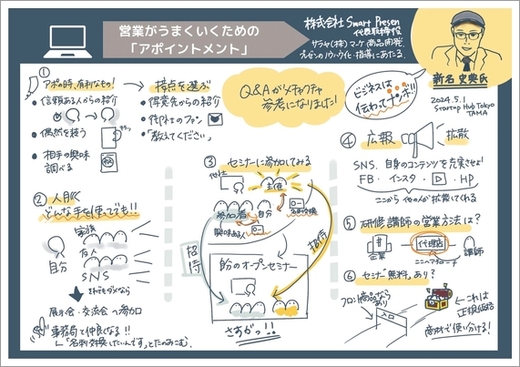 営業がうまくいくための
「アポイントメント」
株式会社 Smart Presen
代表取締役
サラヤ(株) マーケ 商品開発
プレゼンのノウハウを指導にあたる。
新名史典氏
2024.5.1
Startup Hub Tokyo
TAMA
Q&Aがメチャクチャ
参考になりました!
ビジネスは
伝わってナンボ!!
①
アポ時、有利なもの!
・信頼ある人からの紹介
・偶然を装う
・相手の興味
調べる
接点を選ぶ
・得意先からの紹介
・代理士のファン
・「教えてください」
② 人脈
どんな手を使ってでも!!
家族
自分
友人
SNS
それでもダメなら
展示会・交流会へ参加
事務局と仲良くなる!!
「名刺交換したいんです」とたのみこむ。
③ セミナーに参加してみる
主役
参加者
自分
名刺交換
興味ある人
招待
招待
自分のオープンセミナー
さすがっ!!
④ 広報
拡散
SNS、自身のコンテンツを充実せよ!
FB・インスタ・・HP
ここから他の人が拡散してくれる
⑤ 研修講師の営業方法は?
企業
代理店
講師
ここへアプローチ
⑥ セミナー「無料」あり?
フロント商品なら
あり
入口
これは
正規価格
商材で使い分ける!